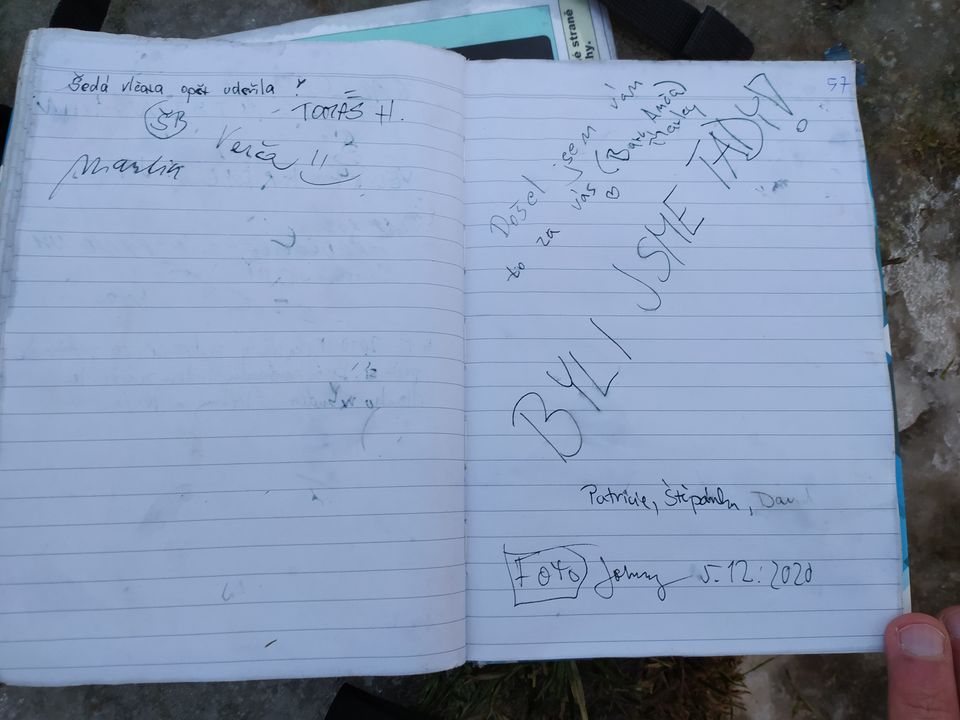 Šedá vlčata opět udeřila!
ŠB
TOMÁŠ H.
Verča
Martin
é straně
hy.
57
Došel jsem vám
to za vás (Bar, Anča)
BYLI JSME TADY!
Patricie, Štěpánka, Dav
FOTO Johny 5.12.2020